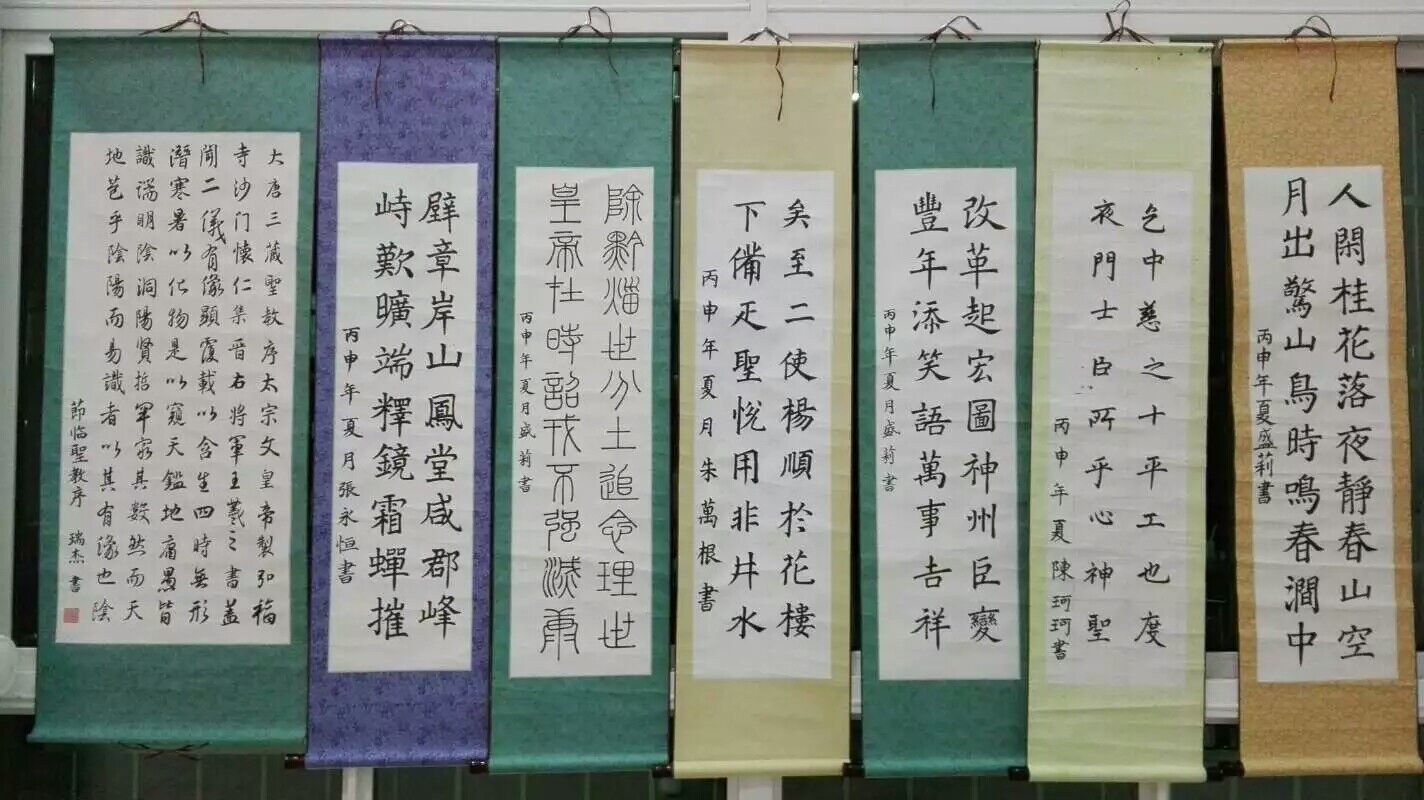 人閑桂花落夜靜春山空
月出驚山鳥時鳴春澗中
丙申年夏盛莉書
乞中慈之十平工也度
夜門士臣所乎心神聖
丙申年夏陳珂珂書
改革起宏圖神州巨變
豐年添笑語萬事吉祥
丙申年夏月盛莉書
矣至二使楊順於花樓
下備疋聖悅用非井水
丙申年夏月朱萬根書
除世分土追念理世
皇帝在時詔戎不強滅
丙申年夏月盛莉書
壁章岸山鳳堂咸郡峰
峙歎曠端釋鏡霜蟬摧
丙申年夏月張永恒書
大唐三蔵聖教序太宗文皇帝製弘福
寺沙门懷仁集晋右將軍王羲之書盖
聞二儀有像顯覆載以含生四時無形
潛寒暑以化物是以窺天鑑地庸愚皆
識端明陰洞陽賢哲罕窮其數然而天
地苞乎陰陽而易識者以其有像也陰
節临聖教序 瑞杰書